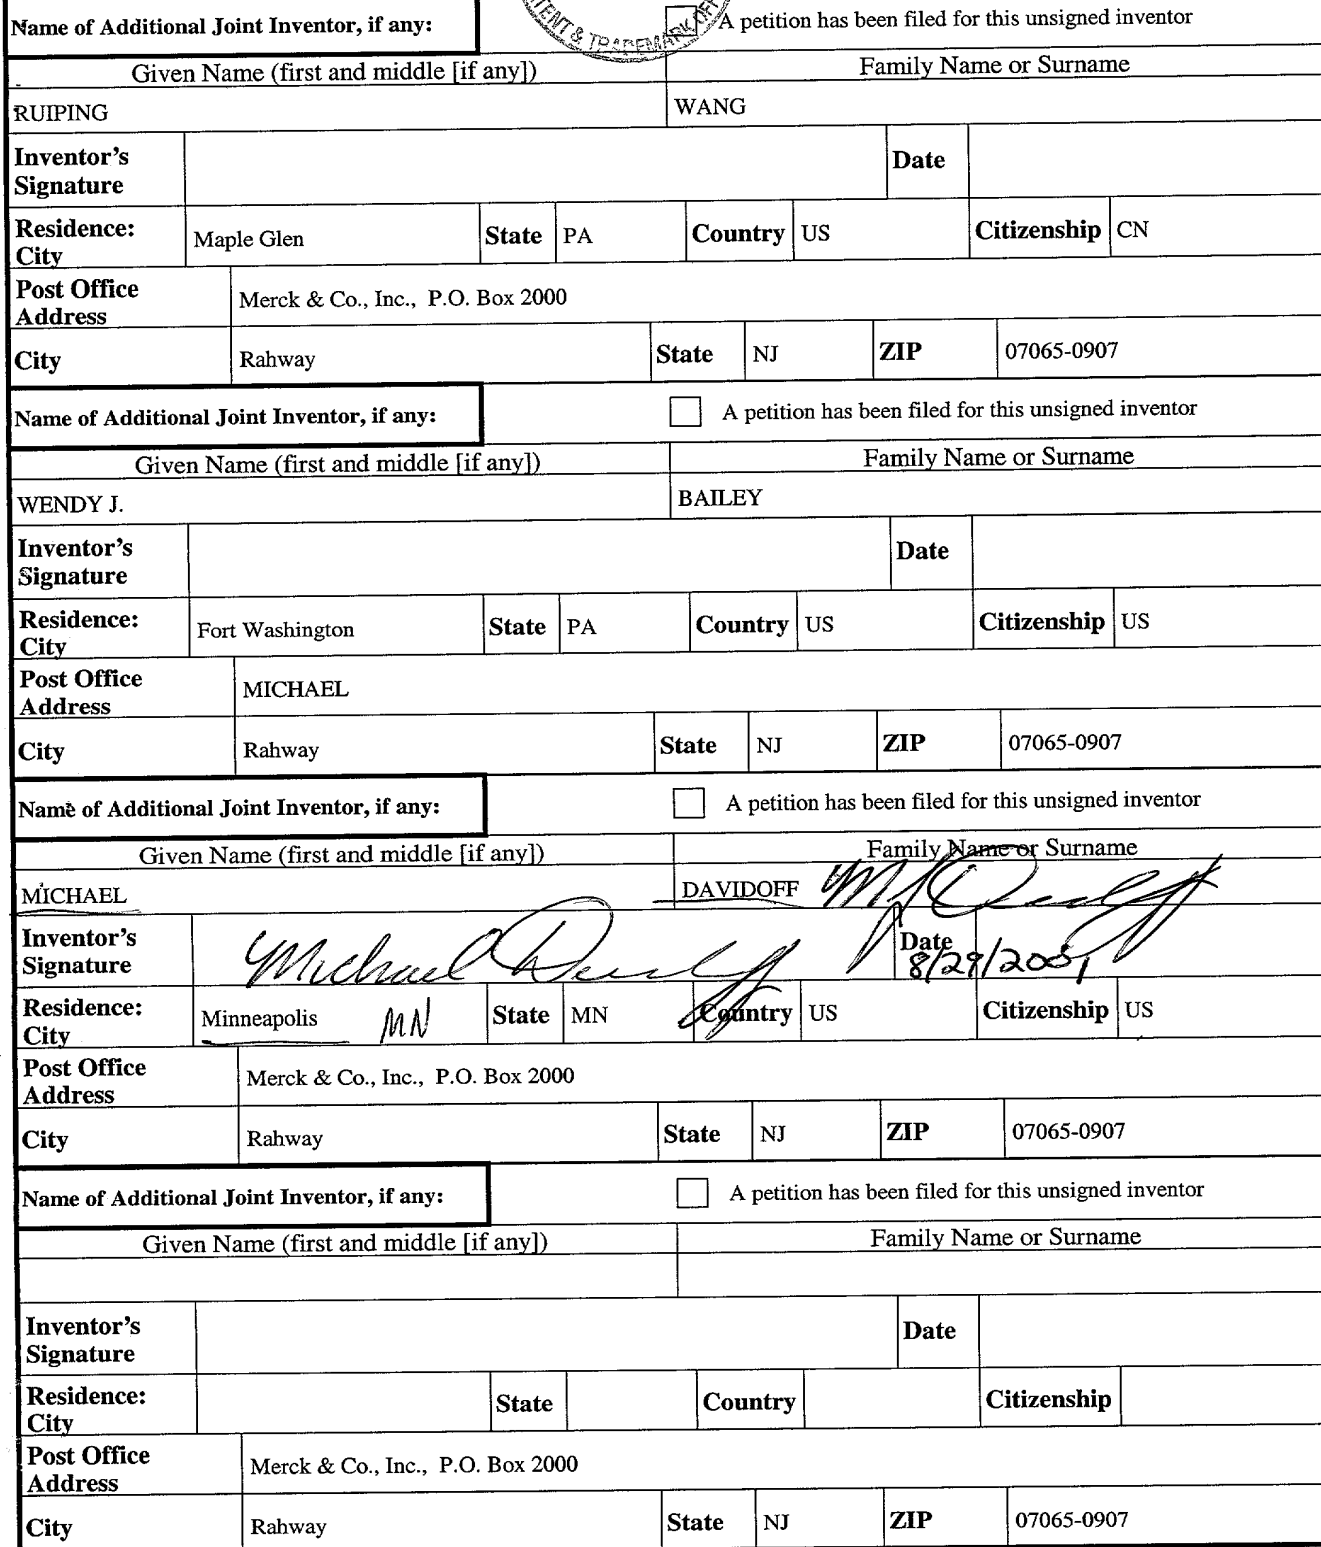 Name of Additional Joint Inventor, if any: A petition has been filed for this unsigned inventor
TENT & TRADEMARK OFF
Given Name (first and middle [if any]) Family Name or Surname
RUIPING WANG
Inventor's Signature Date
Residence: City Maple Glen State PA Country US Citizenship CN
Post Office Address Merck & Co., Inc., P.O. Box 2000
City Rahway State NJ ZIP 07065-0907
Name of Additional Joint Inventor, if any: A petition has been filed for this unsigned inventor
Given Name (first and middle [if any]) Family Name or Surname
WENDY J. BAILEY
Inventor's Signature Date
Residence: City Fort Washington State PA Country US Citizenship US
Post Office Address MICHAEL
City Rahway State NJ ZIP 07065-0907
Name of Additional Joint Inventor, if any: A petition has been filed for this unsigned inventor
Given Name (first and middle [if any]) Family Name or Surname
MICHAEL DAVIDOFF
Inventor's Signature Michael Davidoff Date 8/29/2001
Residence: City Minneapolis MN State MN Country US Citizenship US
Post Office Address Merck & Co., Inc., P.O. Box 2000
City Rahway State NJ ZIP 07065-0907
Name of Additional Joint Inventor, if any: A petition has been filed for this unsigned inventor
Given Name (first and middle [if any]) Family Name or Surname
Inventor's Signature Date
Residence: City State Country Citizenship
Post Office Address Merck & Co., Inc., P.O. Box 2000
City Rahway State NJ ZIP 07065-0907